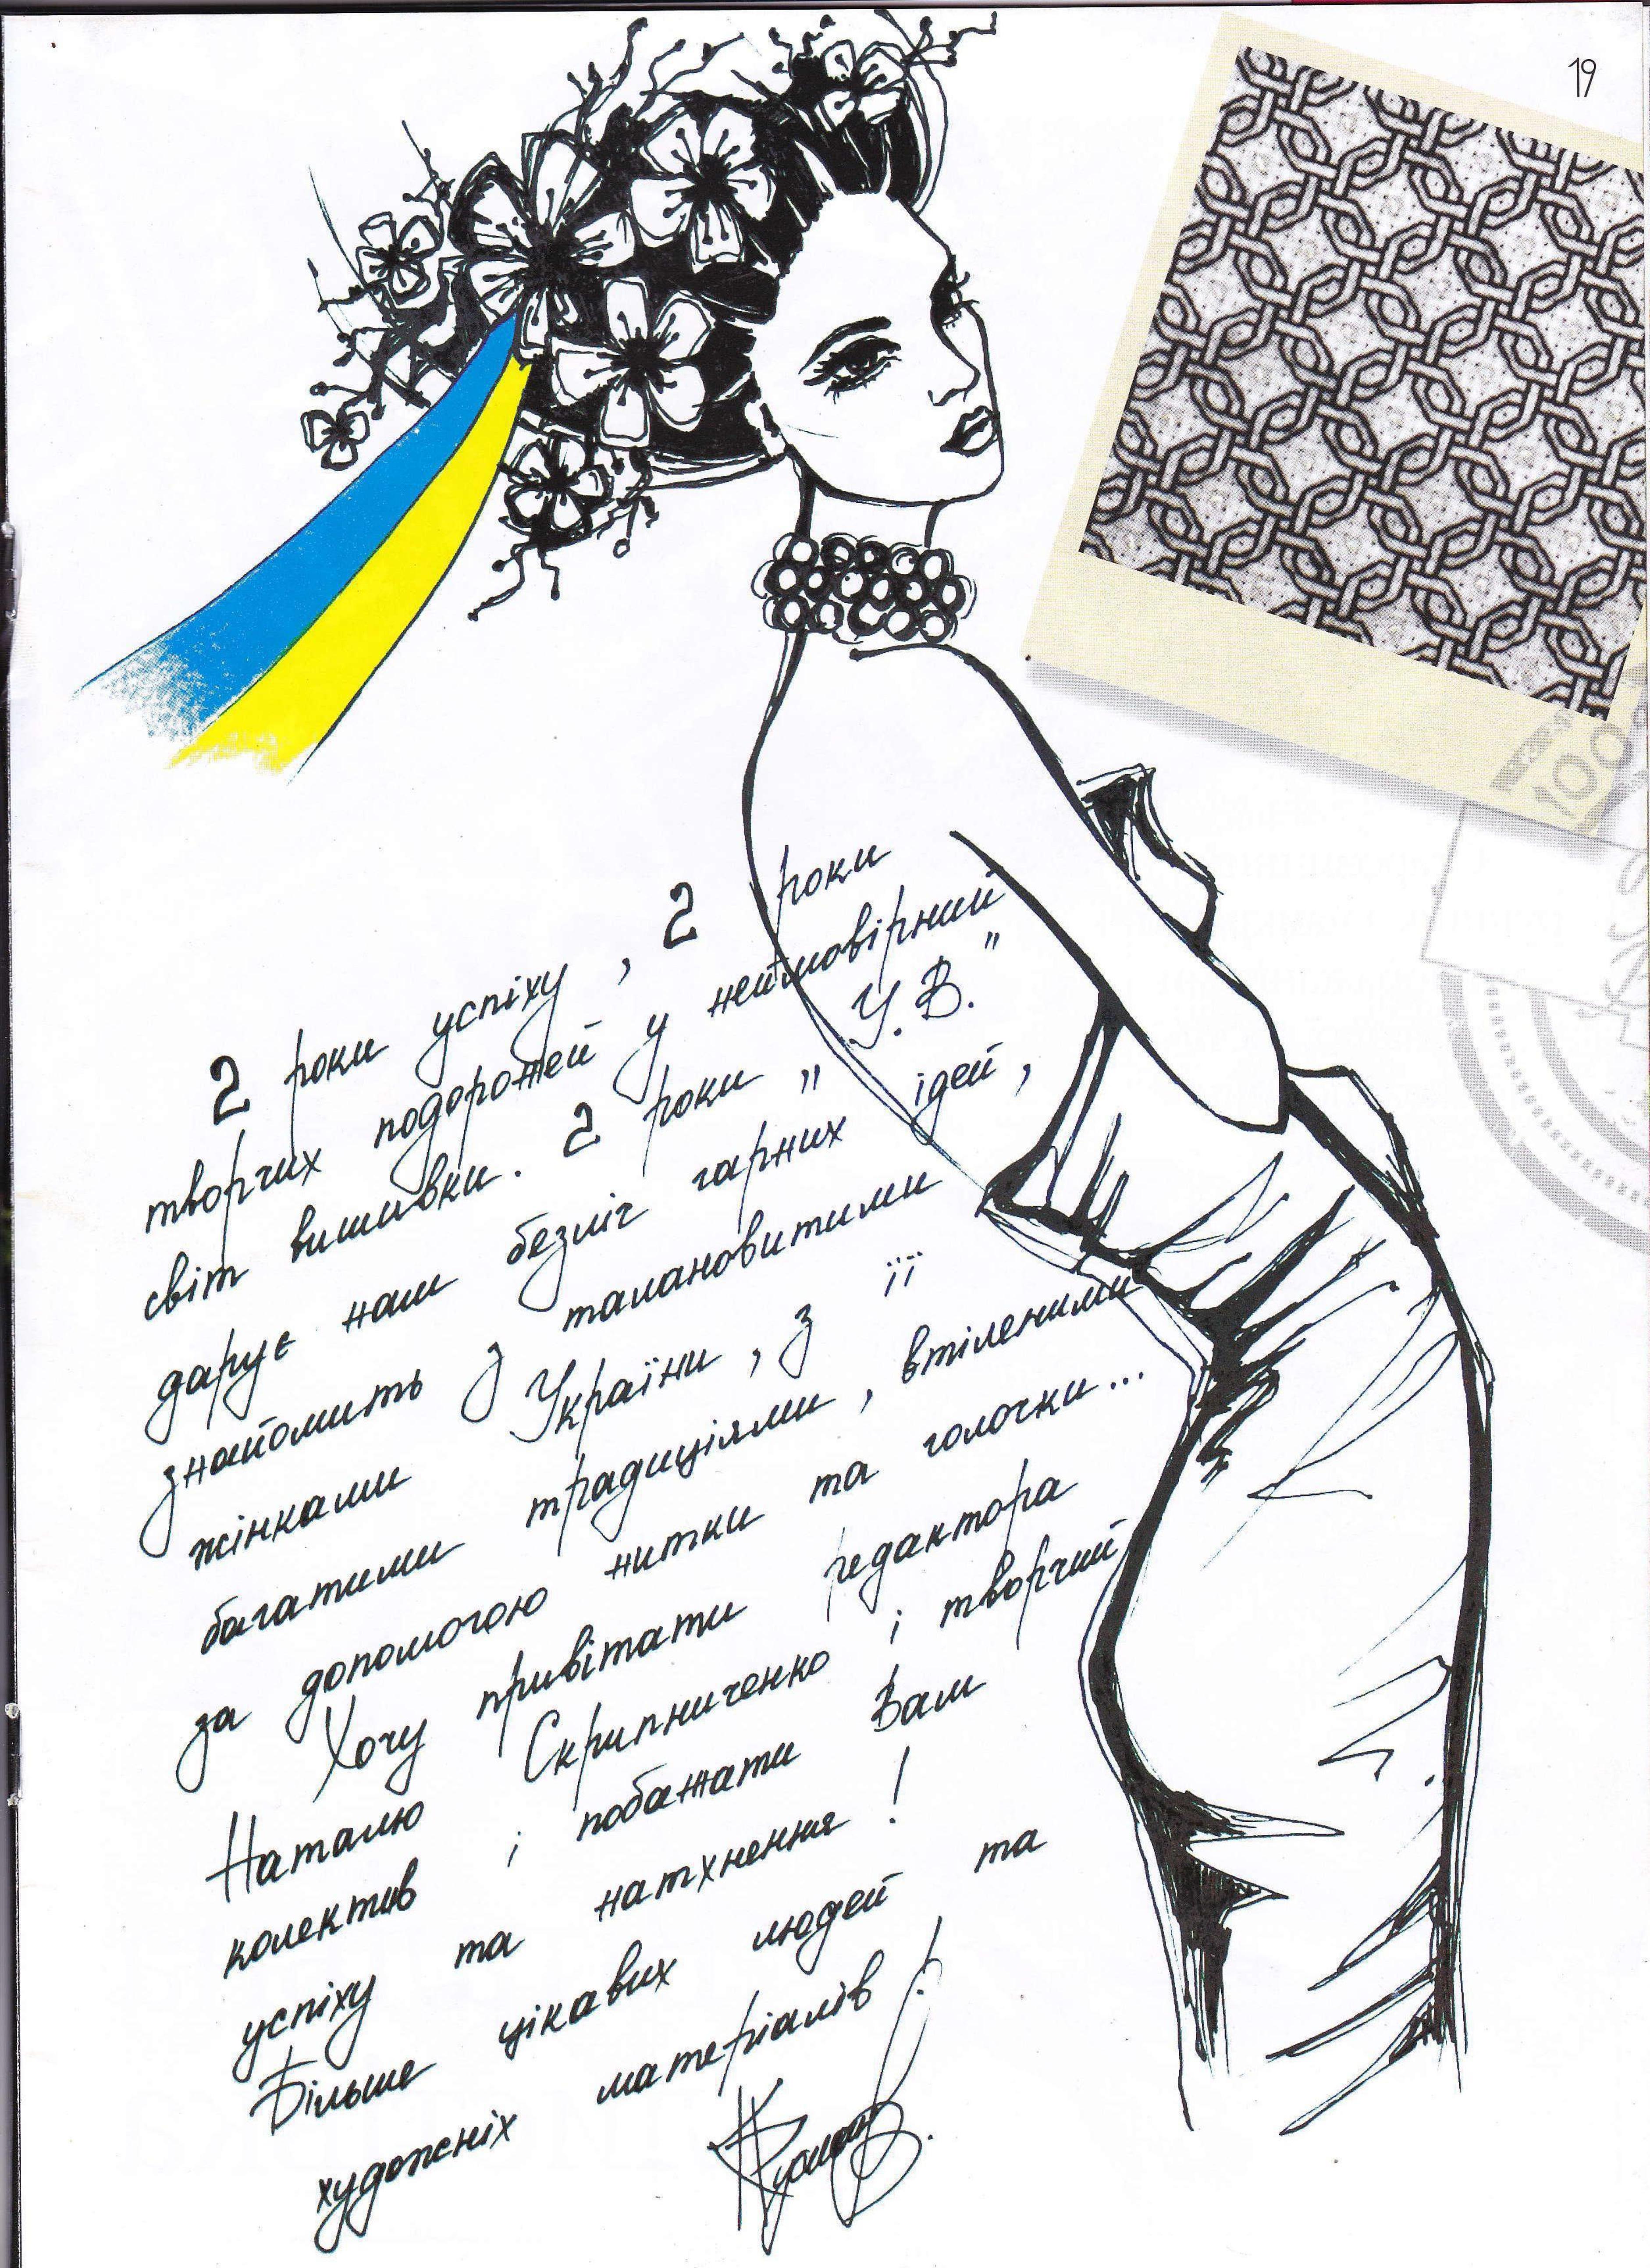 19
100
2 роки успіху, 2 роки
творчих подорожей у неймовірний
світ вишивки. 2 роки „У.В.”
дарує нам безліч гарних ідей,
знайомить з талановитими
жінками України, з її
багатими традиціями, втіленими
за допомогою нитки та голочки...
Хочу привітати редактора
Наталю Скрипниченко і творчий
колектив і побажати Вам
успіху та натхнення!
Більше цікавих людей та
художніх матеріалів!